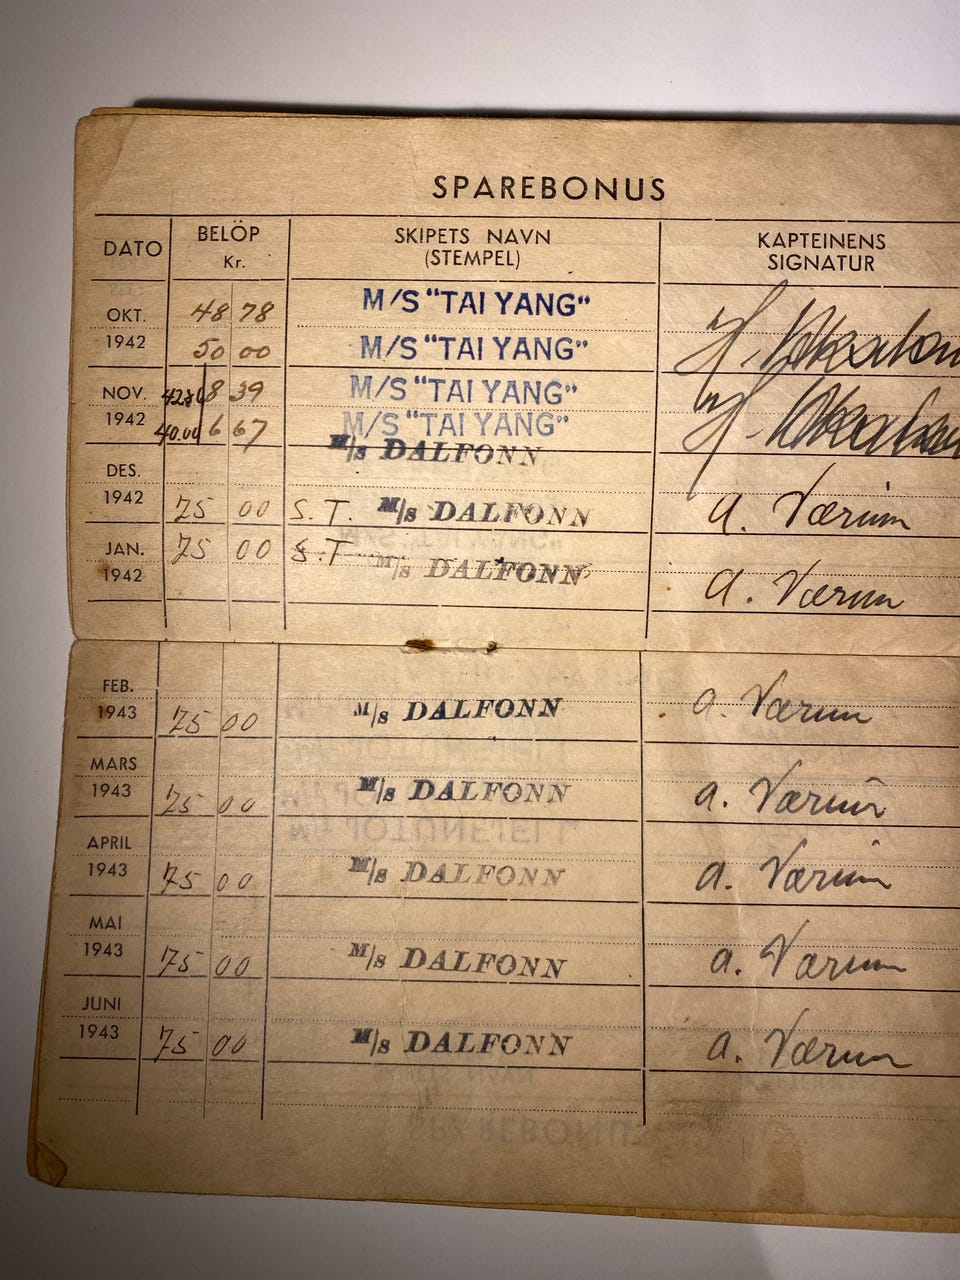 SPAREBONUS
DATO BELÖP Kr. SKIPETS NAVN (STEMPEL) KAPTEINENS SIGNATUR
OKT. 48 78 M/S "TAI YANG"
1942 50 00 M/S "TAI YANG"
NOV. 8 39 M/S "TAI YANG"
1942 40.00 6 67 M/S "TAI YANG"
M/s DALFONN
DES.
1942 75 00 S. T. M/s DALFONN a. Værum
JAN. 75 00 S.T M/s DALFONN
1942 a. Værum
FEB.
1943 75 00 M/s DALFONN a. Værum
MARS
1943 75 00 M/s DALFONN a. Værum
APRIL
1943 75 00 M/s DALFONN a. Værum
MAI
1943 75 00 M/s DALFONN a. Værum
JUNI
1943 75 00 M/s DALFONN a. Værum